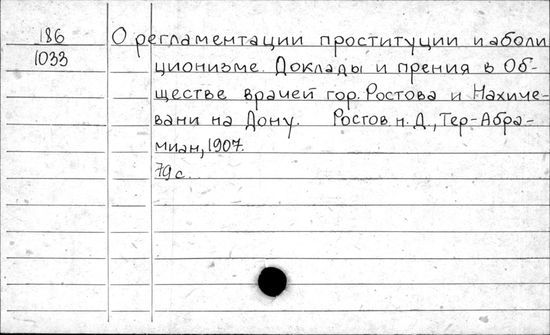 186
1033
О регламентации проституции и аболи
ционизме. Доклады и прения в Об-
ществе врачей гор. Ростова и Нахиче-
вани на Дону. Ростов н. Д., Тер-Абра-
миан, 1907.
79 с.